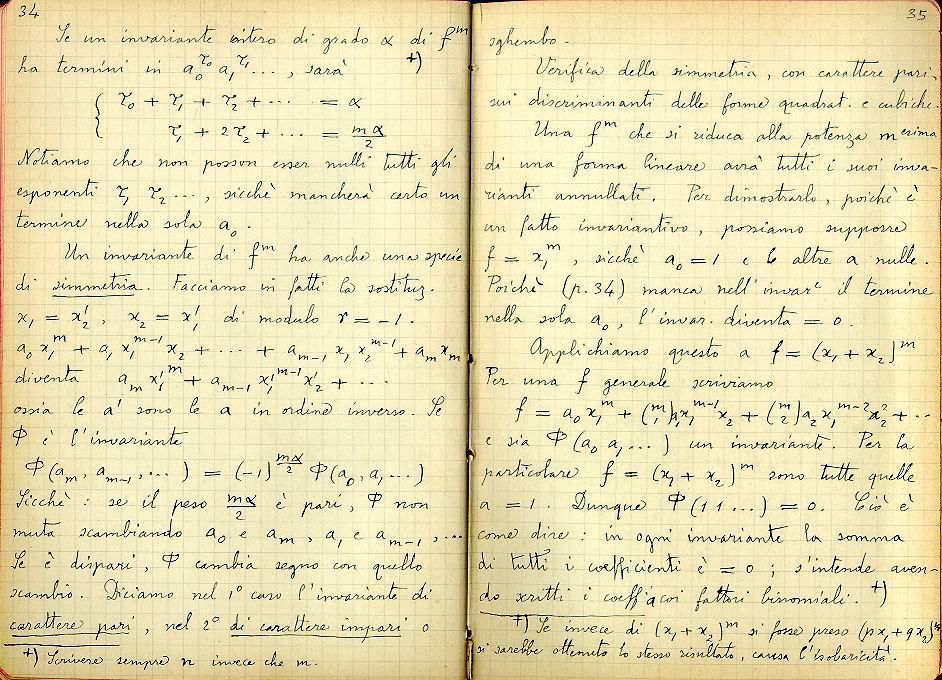 34
Se un invariante intero di grado α di f^m
ha termini in a_0^{τ_0} a_1^{τ_1} ..., sarà +)
{ τ_0 + τ_1 + τ_2 + ... = α
τ_1 + 2τ_2 + ... = mα/2
Notiamo che non posson esser nulli tutti gli
esponenti τ_1 τ_2 ..., sicchè mancherà certo un
termine nella sola a_0.
Un invariante di f^m ha anche una specie
di simmetria. Facciamo in fatti la sostituz.
x_1 = x'_2, x_2 = x'_1 di modulo r = -1.
a_0 x_1^m + a_1 x_1^{m-1} x_2 + ... + a_{m-1} x_1 x_2^{m-1} + a_m x_m
diventa a_m x'_1^m + a_{m-1} x'_1^{m-1} x'_2 + ...
ossia le a' sono le a in ordine inverso. Se
Φ è l'invariante
Φ(a_m, a_{m-1}, ...) = (-1)^{mα/2} Φ(a_0, a_1 ...)
Sicchè: se il peso mα/2 è pari, Φ non
muta scambiando a_0 e a_m, a_1 e a_{m-1}, ...
Se è dispari, Φ cambia segno con quello
scambio. Diciamo nel 1º caso l'invariante di
carattere pari, nel 2º di carattere impari o
+) Scrivere sempre n invece che m.
35
sghembo.
Verifica della simmetria, con carattere pari,
sui discriminanti delle forme quadrat. e cubiche.
Una f^m che si riduca alla potenza m esima
di una forma lineare avrà tutti i suoi inva-
rianti annullati. Per dimostrarlo, poichè è
un fatto invariantivo, possiamo supporre
f = x_1^m, sicchè a_0 = 1 e le altre a nulle.
Poichè (p. 34) manca nell'invar^e il termine
nella sola a_0, l'invar. diventa = 0.
Applichiamo questo a f = (x_1 + x_2)^m
Per una f generale scriviamo
f = a_0 x_1^m + (m 1) a_1 x_1^{m-1} x_2 + (m 2) a_2 x_1^{m-2} x_2^2 + ...
e sia Φ(a_0 a_1 ...) un invariante. Per la
particolare f = (x_1 + x_2)^m sono tutte quelle
a = 1. Dunque Φ(1 1 ...) = 0. Ciò è
come dire: in ogni invariante la somma
di tutti i coefficienti è = 0; s'intende aven-
do scritti i coeff^i a coi fattori binomiali. +)
+) Se invece di (x_1 + x_2)^m si fosse preso (px_1 + qx_2)^m
si sarebbe ottenuto lo stesso risultato, causa l'isobaricità.